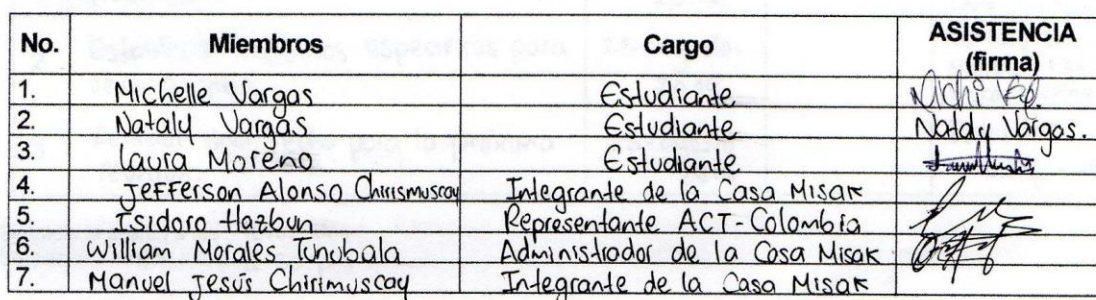 No. Miembros Cargo ASISTENCIA (firma)
1. Michelle Vargas Estudiante
2. Nataly Vargas Estudiante Nataly Vargas.
3. Laura Moreno Estudiante
4. Jefferson Alonso Chirismuscay Integrante de la Casa Misak
5. Isidoro Hazbun Representante ACT-Colombia
6. William Morales Tunubala Administrador de la Casa Misak
7. Manuel Jesús Chirimuscay Integrante de la Casa Misak